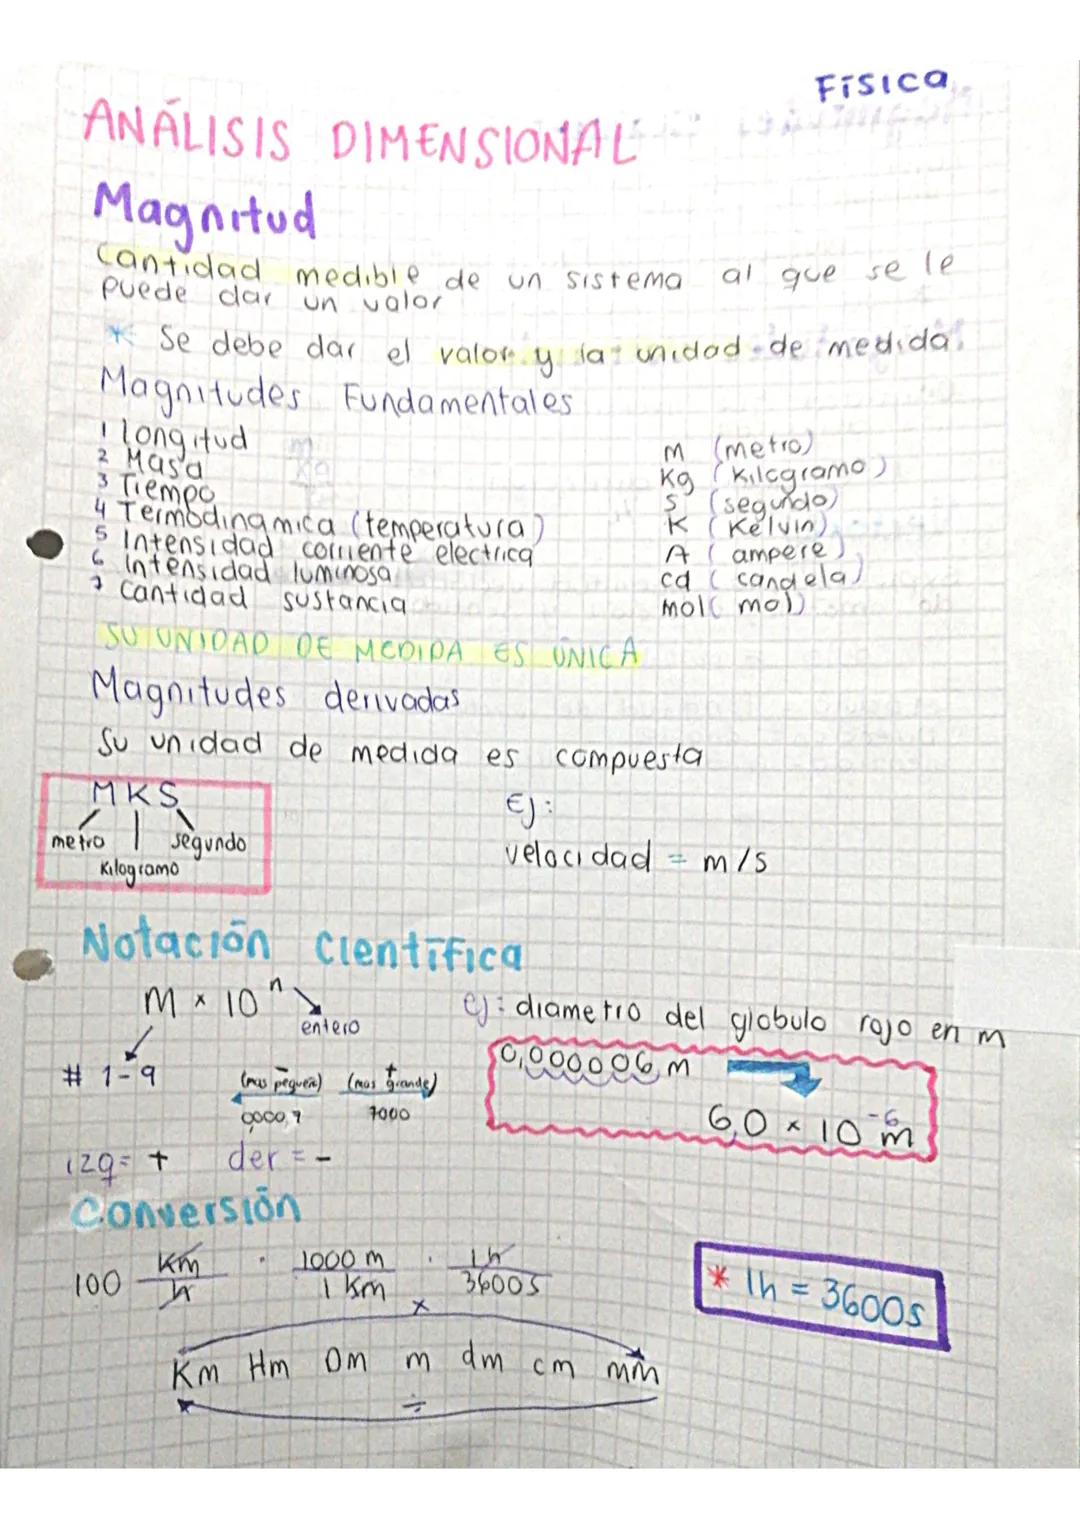 Física
ANÁLISIS DIMENSIONAL
Magnitud
Cantidad medible de un sistema al que se le
puede dar un valor
* Se debe dar el valor y la unidad de medida.
Magnitudes Fundamentales
1 Longitud m (metro)
2 Masa Kg (Kilogramo)
3 Tiempo s (segundo)
4 Termodinamica (temperatura) K (Kelvin)
5 Intensidad corriente electrica A (ampere)
6 Intensidad luminosa cd (candela)
7 Cantidad sustancia mol (mol)
SU UNIDAD DE MEDIDA ES ÚNICA
Magnitudes derivadas
Su unidad de medida es compuesta
MKS
metro segundo
Kilogramo
Ej:
velocidad = m/s
Notación Científica
M × 10ⁿ
entero
# 1-9
- +
(mas pequeña) (mas grande)
0000,7 7000
izq = + der = -
ej: diametro del globulo rojo en m
0,000006 m
6,0 × 10⁻⁶ m
Conversión
100 Km/h · 1000 m/1 Km · 1h/3600s
* 1h = 3600s
×
Km Hm Dm m dm cm mm
÷